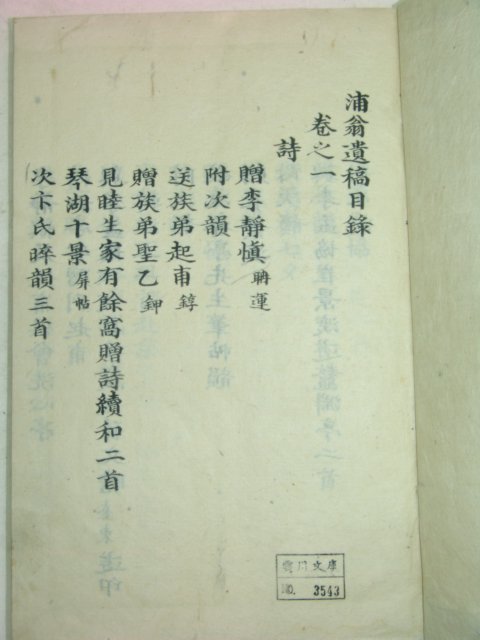 浦翁遺稿目錄
卷之一
詩
贈李靜愼 聃運
附次韻
送族弟起甫 錞
贈族弟聖乙 鉀
見睦生家有餘窩贈詩續和二首
琴湖十景 屛帖
次卞氏晬韻三首
文庫
NO. 3543